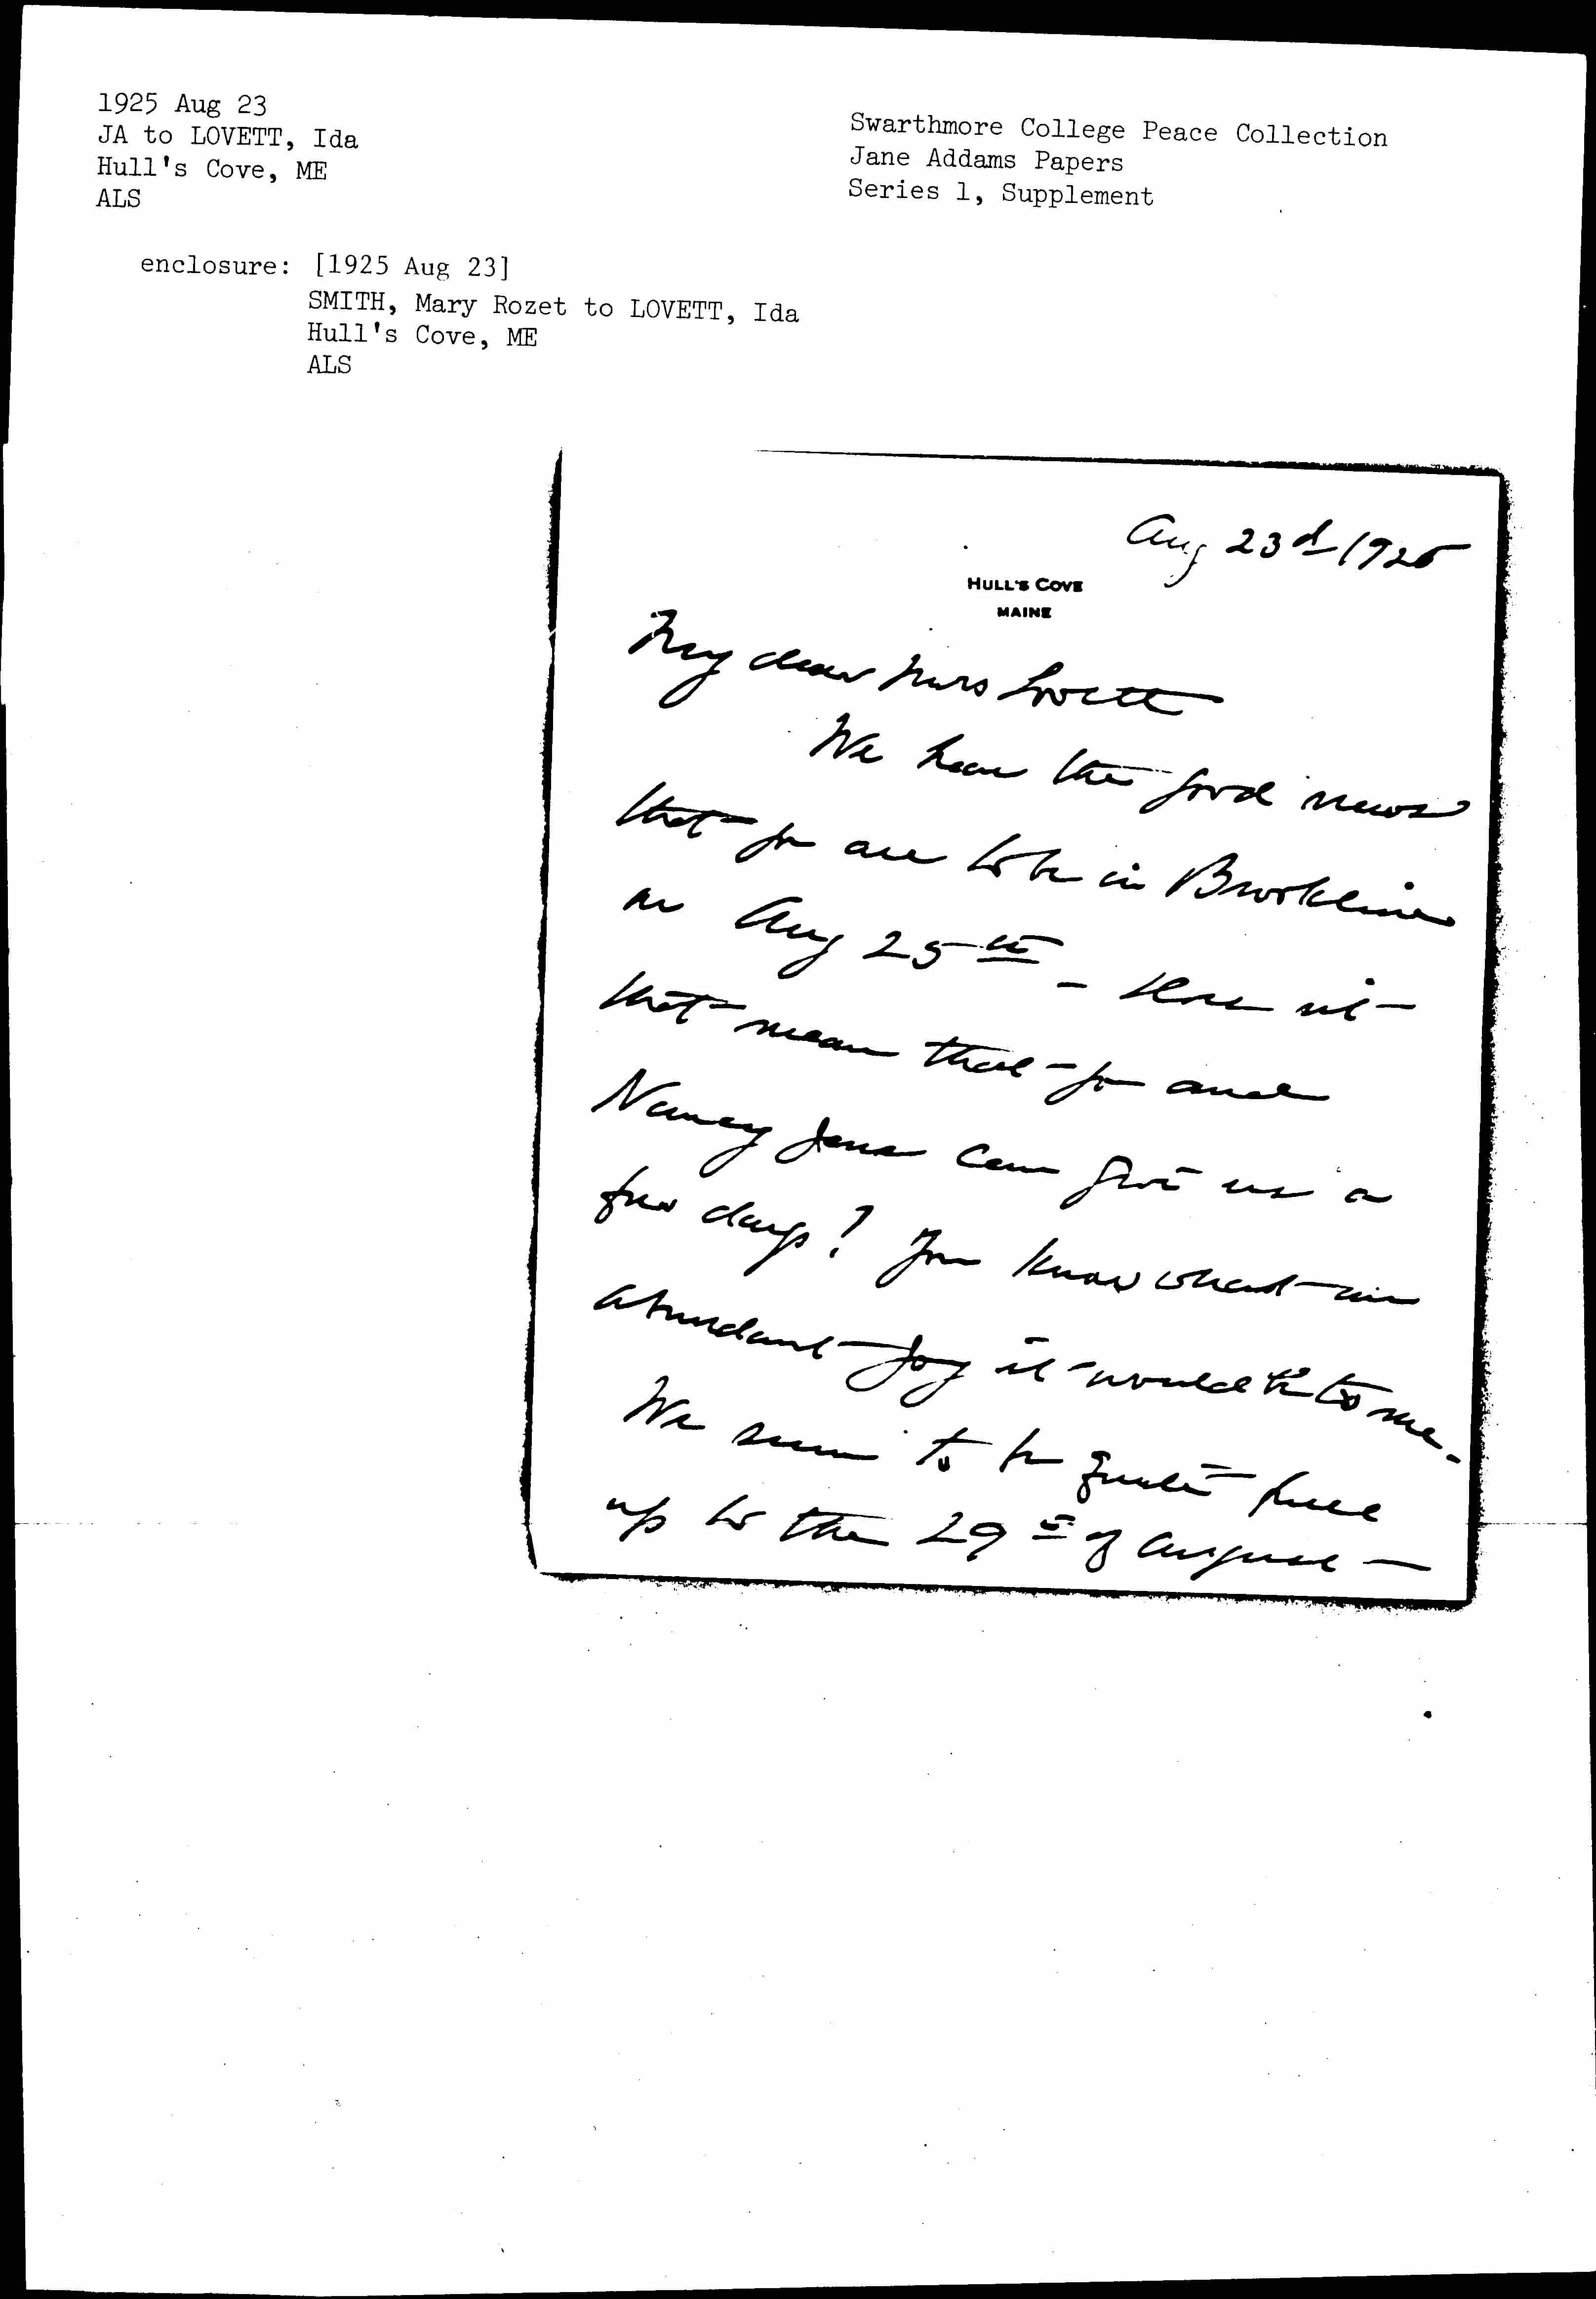 1925 Aug 23
JA to LOVETT, Ida
Hull's Cove, ME
ALS
Swarthmore College Peace Collection
Jane Addams Papers
Series 1, Supplement
enclosure: [1925 Aug 23]
SMITH, Mary Rozet to LOVETT, Ida
Hull's Cove, ME
ALS
Aug 23d 1925
HULL'S COVE
MAINE
My dear Mrs Lovett
We hear the good news
that you are to be in Brookline
on Aug 25th - does not
that mean that you and
Nancy Jane can give us a
few days? You know what an
abundant joy it would be to me.
We seem to be quite full
up to the 29th of August —